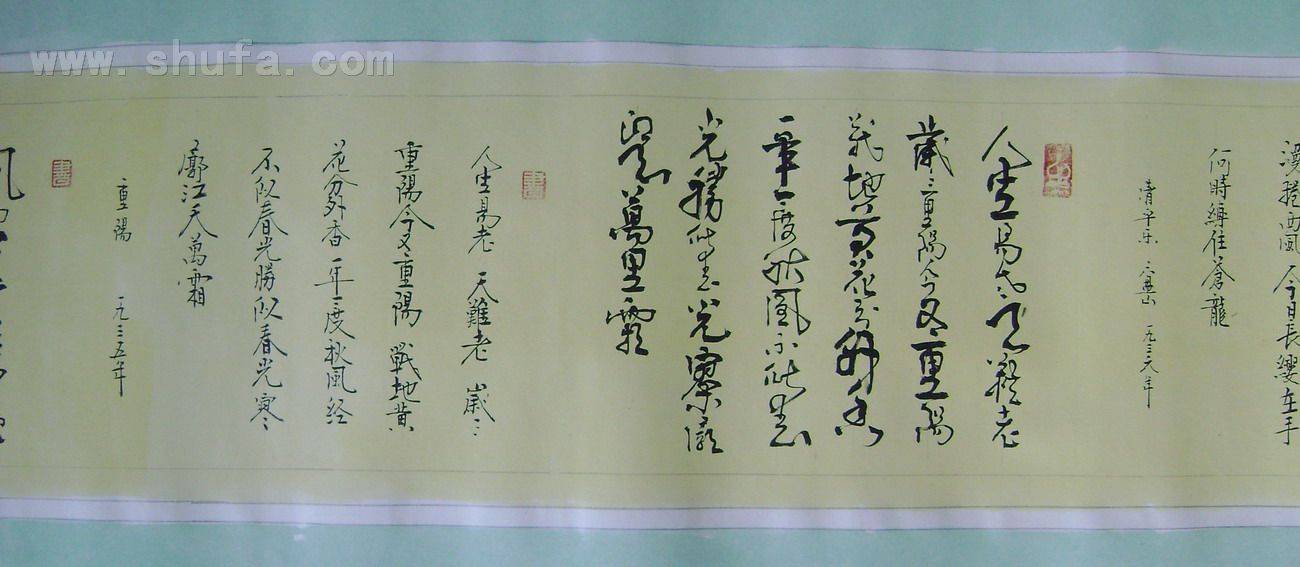 www.shufa.com
漫捲西風今日長纓在手
何時縛住蒼龍
清平乐 六盘山 一九三六年
人生易老天難老
歲々重陽今又重陽
戰地黄花分外香
一年一度秋風不似春
光勝似春光寥廓
江天萬里霜
人生易老 天難老 歲々
重陽今又重陽 戰地黄
花分外香 一年一度秋風经
不似春光勝似春光寥々
廓江天萬霜
重陽 一九三五年
風